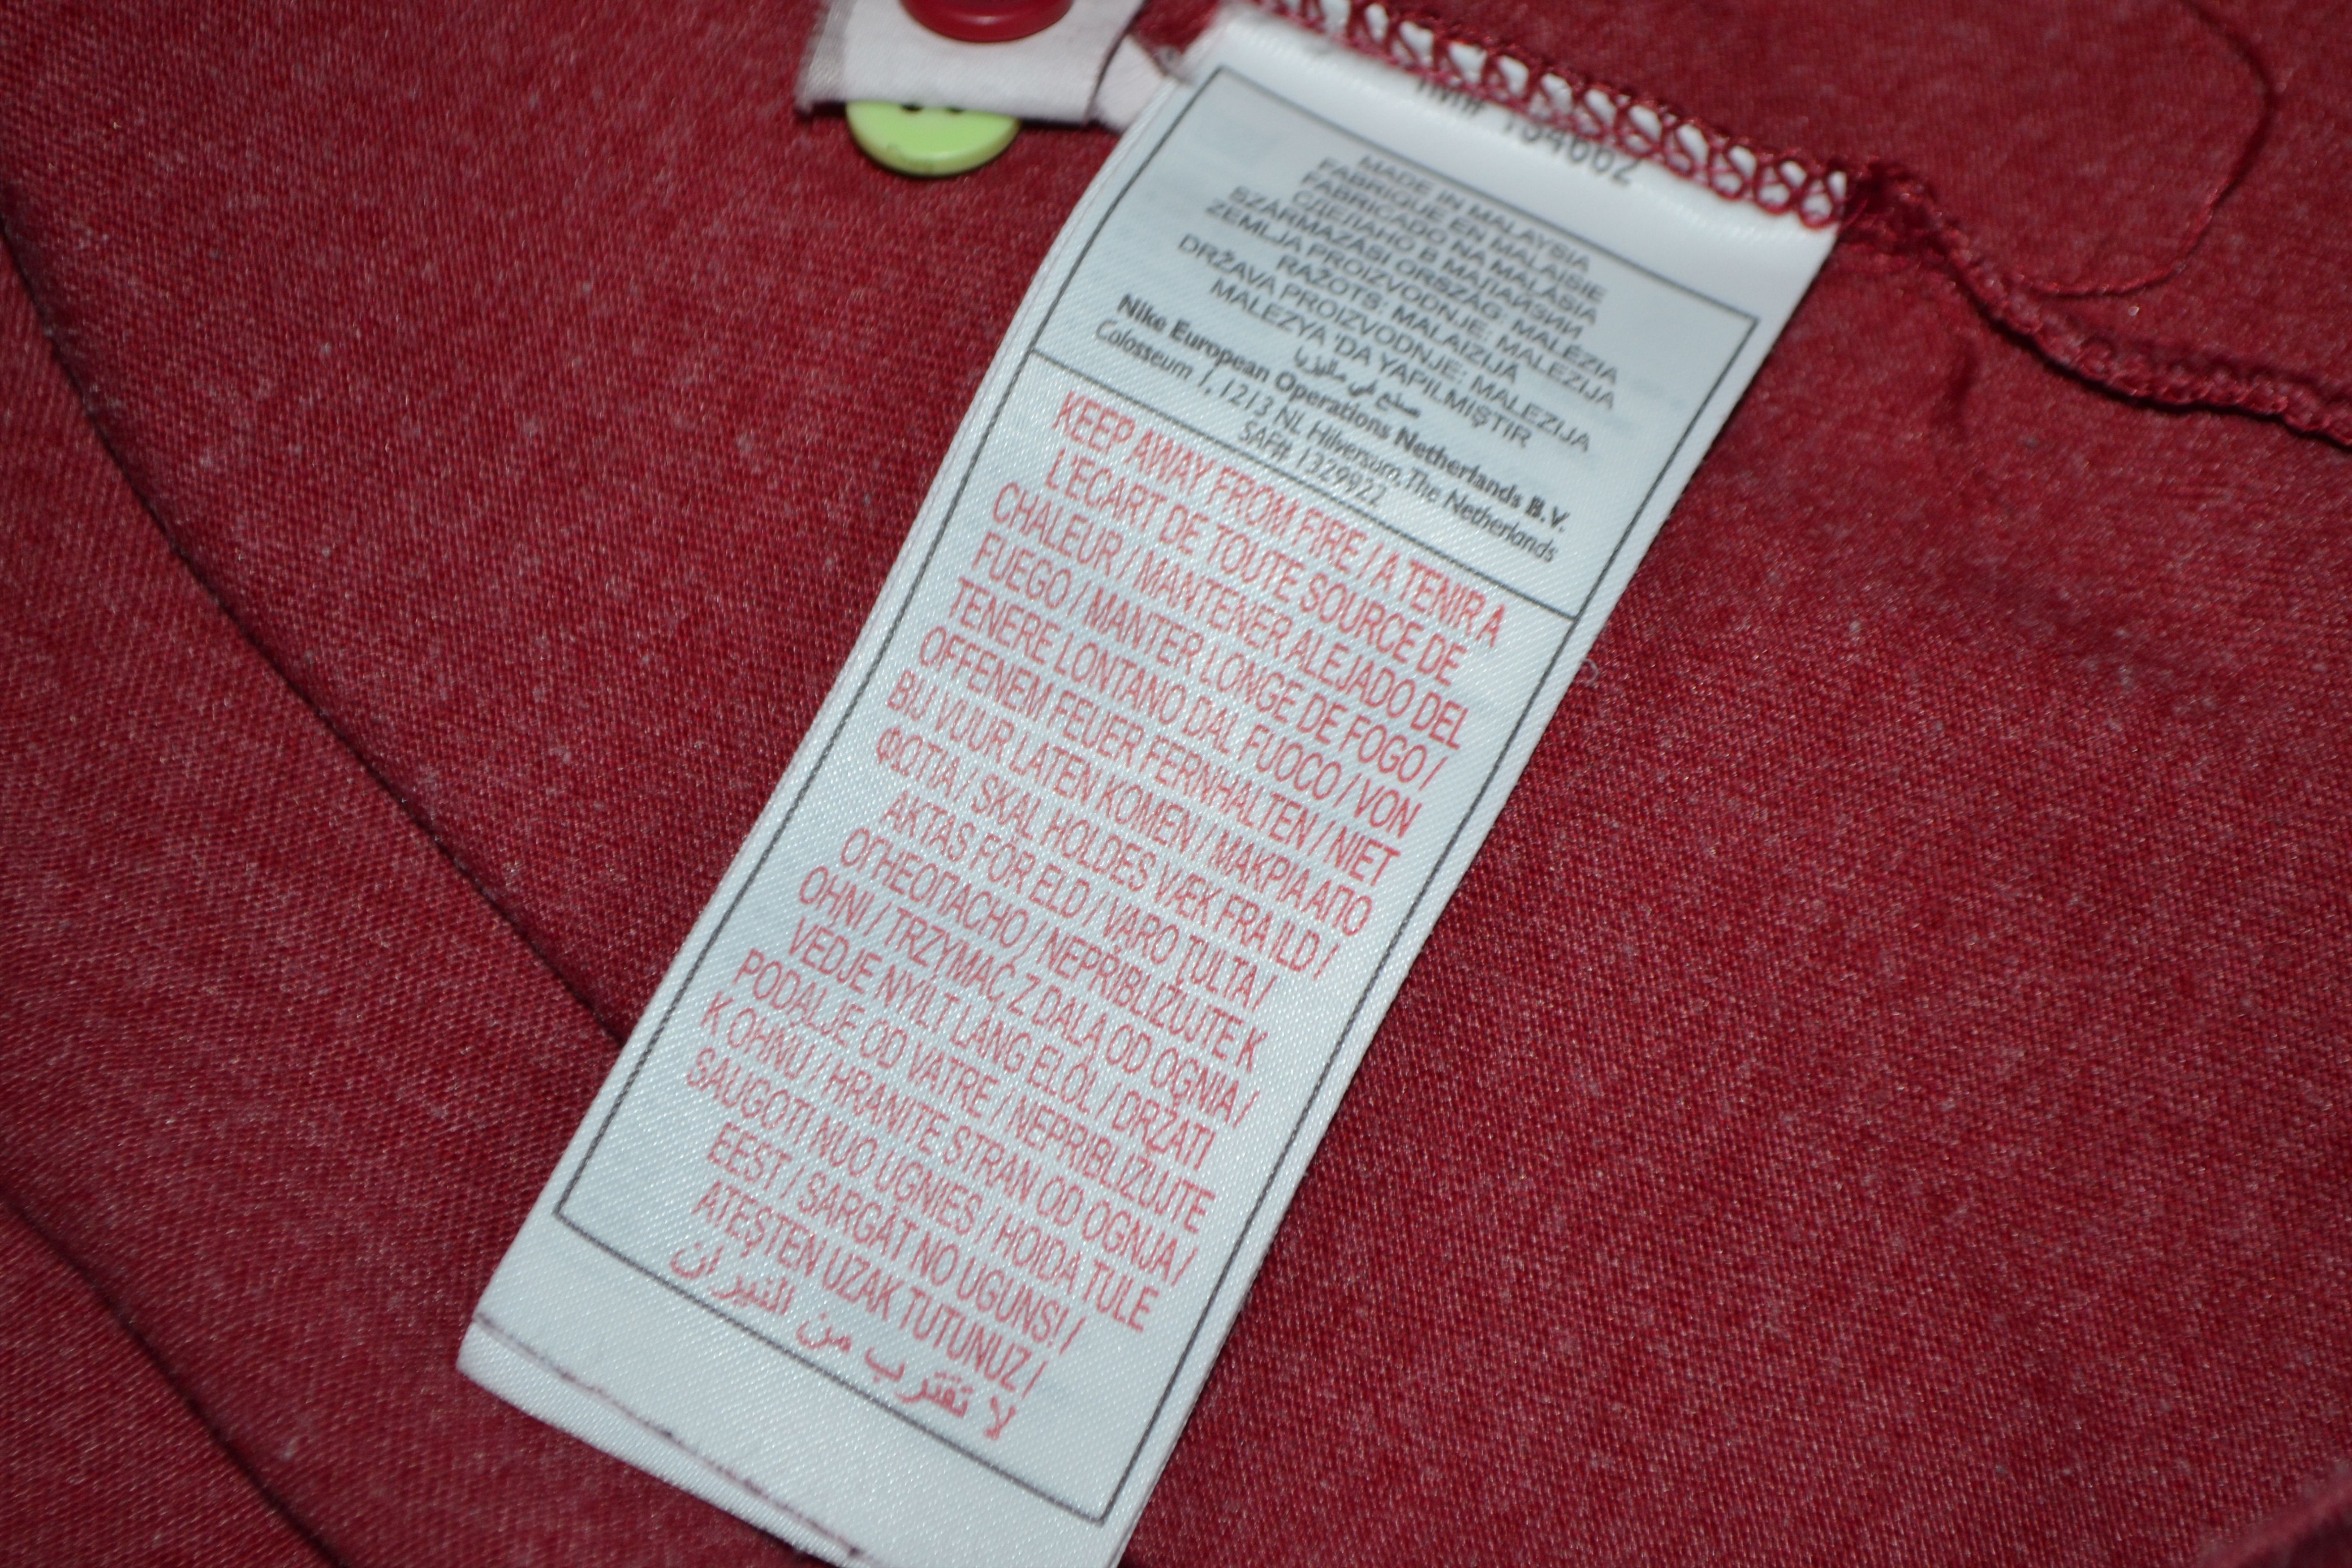 MADE IN MALAYSIA
FABRIQUE EN MALAISIE
FABRICADO NA MALÁSIA
СДЕЛАНО В МАЛАЙЗИИ
SZÁRMAZÁSI ORSZÁG: MALÉZIA
ZEMLJA PROIZVODNJE: MALEZIJA
RAŽOTS: MALAIZIJA
DRŽAVA PROIZVODNJE: MALEZIJA
MALEZYA 'DA YAPILMIŞTIR
صنع في ماليزيا
Nike European Operations Netherlands B.V.
Colosseum 1, 1213 NL Hilversum, The Netherlands
SAF# 1329921
KEEP AWAY FROM FIRE / A TENIR A
L'ECART DE TOUTE SOURCE DE
CHALEUR / MANTENER ALEJADO DEL
FUEGO / MANTER LONGE DE FOGO /
TENERE LONTANO DAL FUOCO / VON
OFFENEM FEUER FERNHALTEN / NIET
BIJ VUUR LATEN KOMEN / ΜΑΚΡΙΑ ΑΠΟ
ΦΩΤΙΑ / SKAL HOLDES VÆK FRA ILD /
AKTAS FÖR ELD / VARO TULTA /
ОГНЕОПАСНО / NEPŘIBLIŽUJTE K
OHNI / TRZYMAĆ Z DALA OD OGNIA /
VEDJE NYÍLT LÁNG ELŐL / DRŽATI
PODALJE OD VATRE / NEPRIBLIŽUJTE
K OHŇU / HRANITE STRAN OD OGNJA /
SAUGOTI NUO UGNIES / HOIDA TULE
EEST / SARGĀT NO UGUNS! /
ATEŞTEN UZAK TUTUNUZ /
لا تقترب من النيران